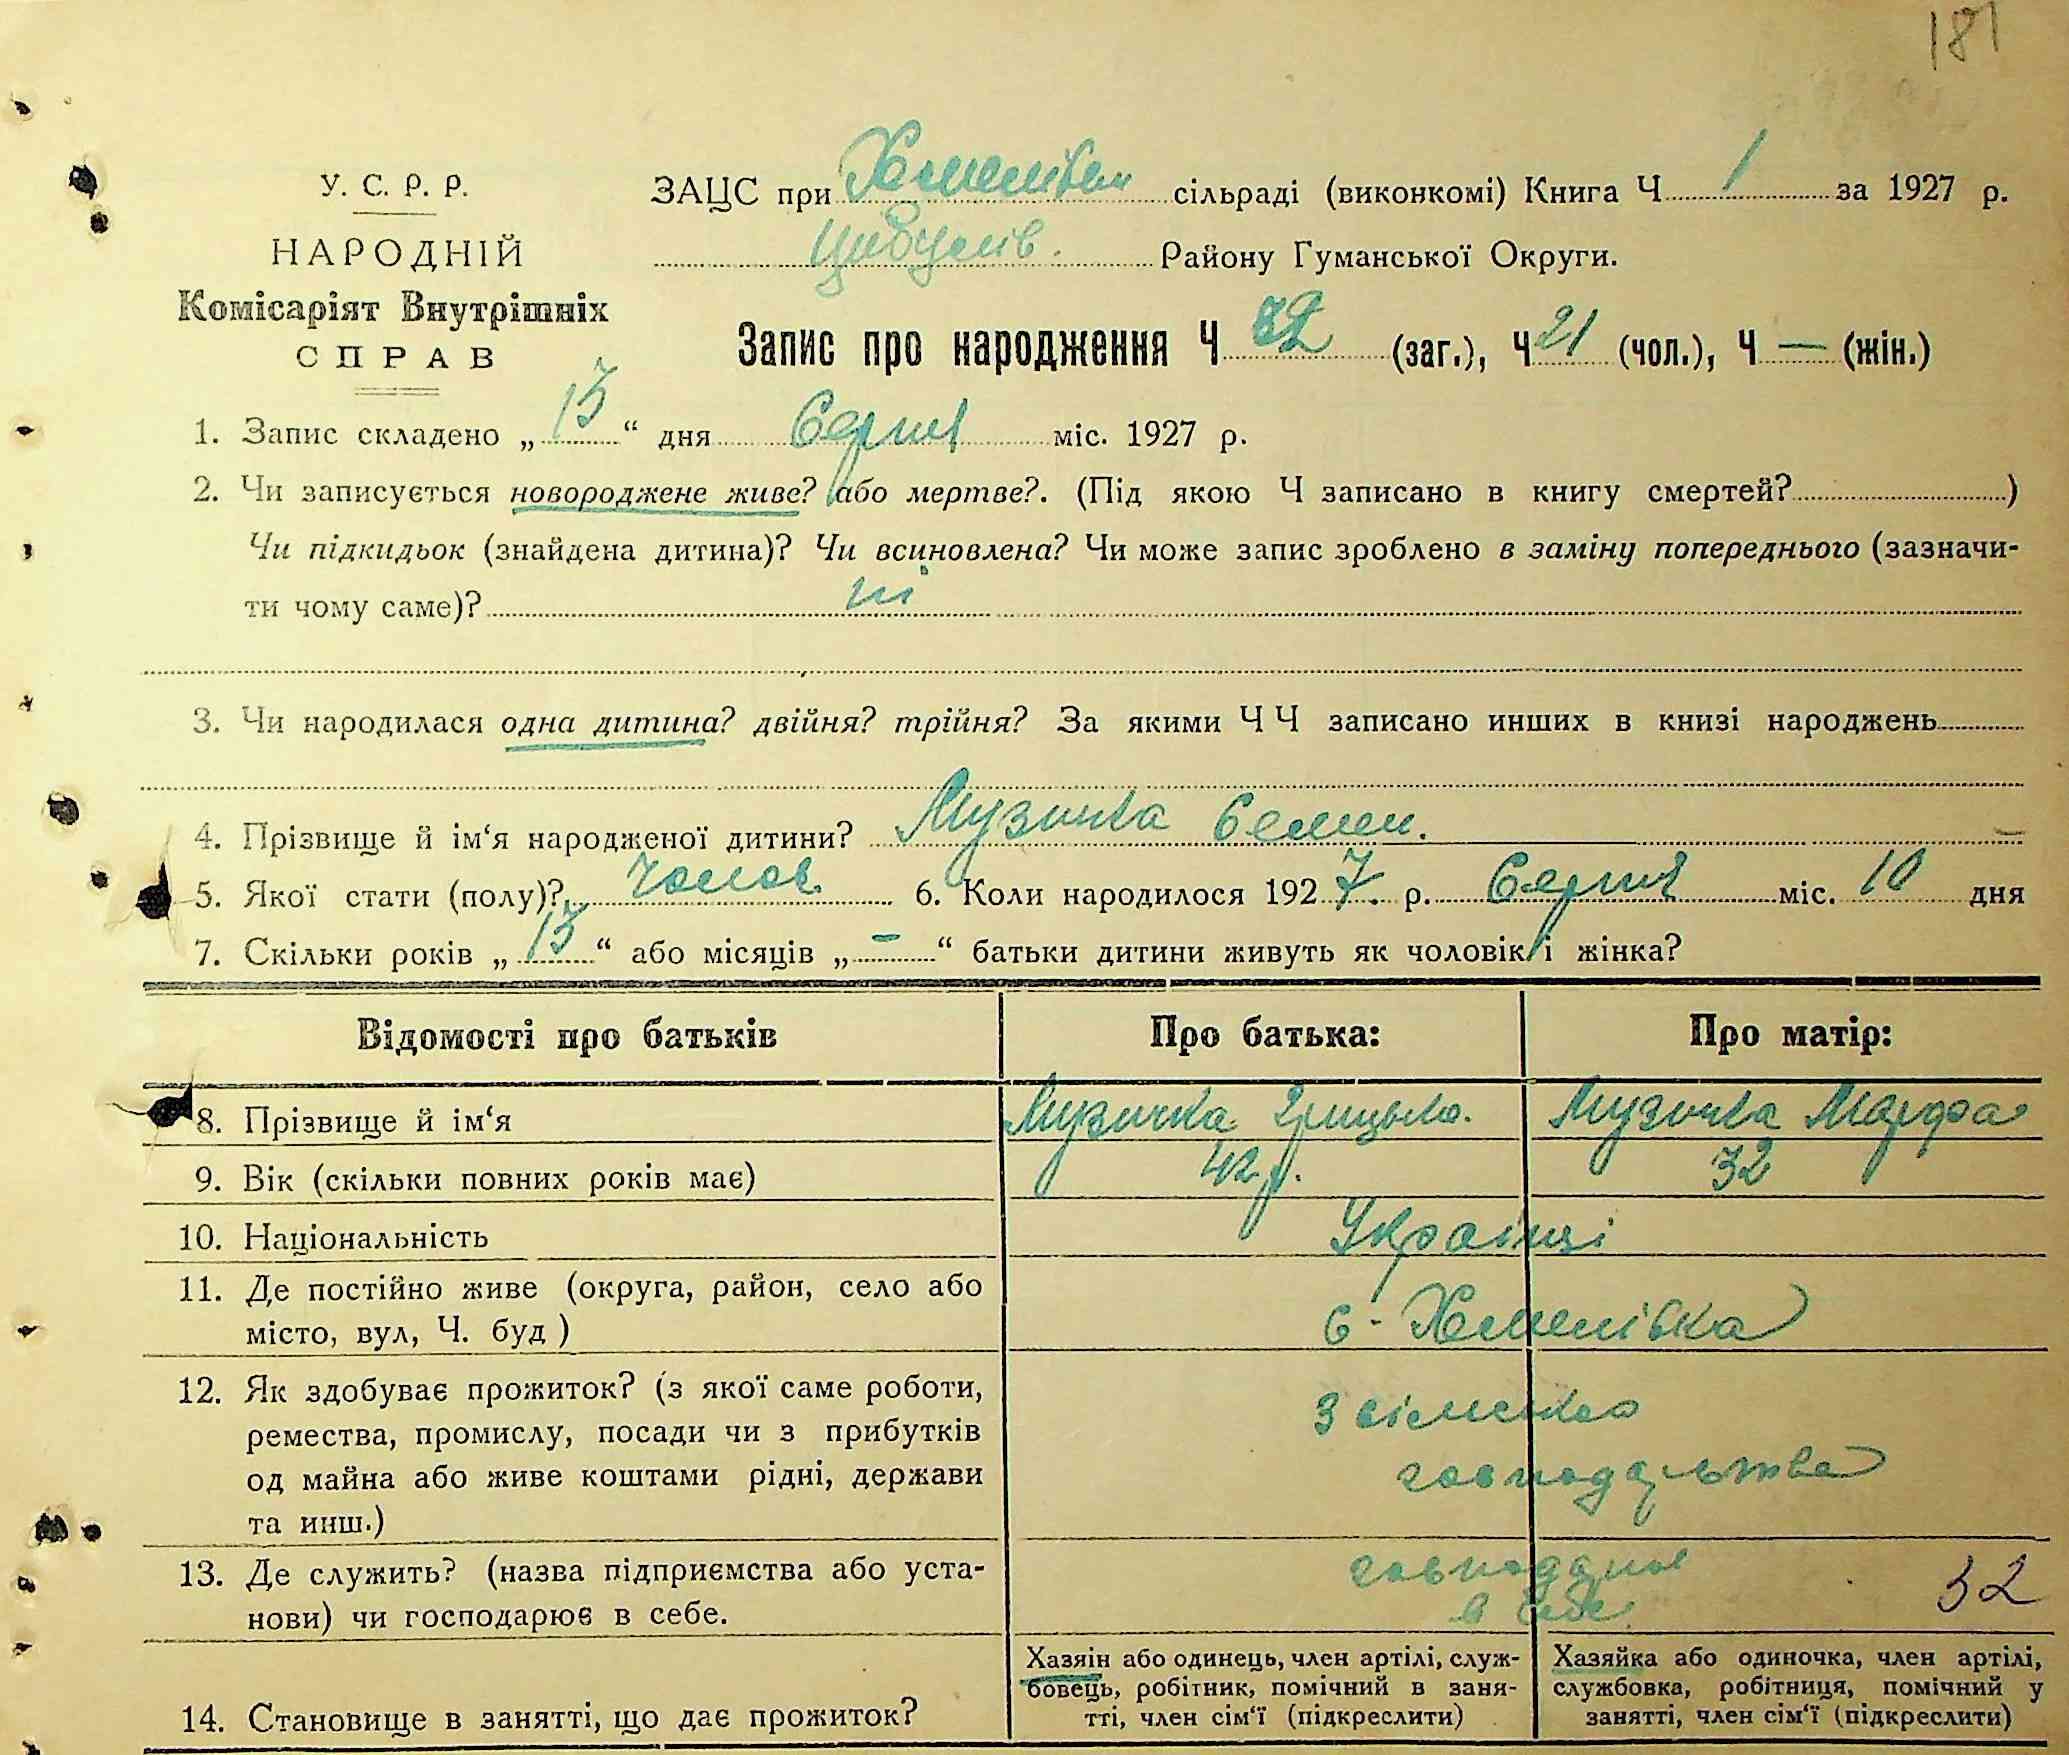 181
У. С. Р. Р.
НАРОДНІЙ
Комісаріят Внутрішніх
СПРАВ
ЗАЦС при Хмелівск сільраді (виконкомі) Книга Ч 1 за 1927 р.
Цибулів. Району Гуманської Округи.
Запис про народження Ч 32 (заг.), Ч 21 (чол.), Ч — (жін.)
1. Запис складено „13“ дня Серпня міс. 1927 р.
2. Чи записується новороджене живе? або мертве?. (Під якою Ч записано в книгу смертей? )
Чи підкидьок (знайдена дитина)? Чи всиновлена? Чи може запис зроблено в заміну попереднього (зазначи-
ти чому саме)? ні
3. Чи народилася одна дитина? двійня? трійня? За якими ЧЧ записано инших в книзі народжень
4. Прізвище й ім‘я народженої дитини? Музичка Семен.
5. Якої стати (полу)? Чолов. 6. Коли народилося 1927. р. Серпня міс. 10 дня
7. Скільки років „13“ або місяців „–“ батьки дитини живуть як чоловік і жінка?
Відомості про батьків Про батька: Про матір:
8. Прізвище й ім‘я Музичка Грицько. Музичка Марфа
9. Вік (скільки повних років має) 42 р. 32
10. Національність Українці
11. Де постійно живе (округа, район, село або
місто, вул, Ч. буд ) с. Хмелівка
12. Як здобуває прожиток? (з якої саме роботи,
ремества, промислу, посади чи з прибутків
од майна або живе коштами рідні, держави
та инш.)
З сільсько
господарства
13. Де служить? (назва підприємства або уста-
нови) чи господарює в себе.
в себе
32
14. Становище в занятті, що дає прожиток?
Хазяін або одинець, член артілі, служ-
бовець, робітник, помічний в заня-
тті, член сім‘ї (підкреслити)
Хазяйка або одиночка, член артілі,
службовка, робітниця, помічний у
занятті, член сім‘ї (підкреслити)